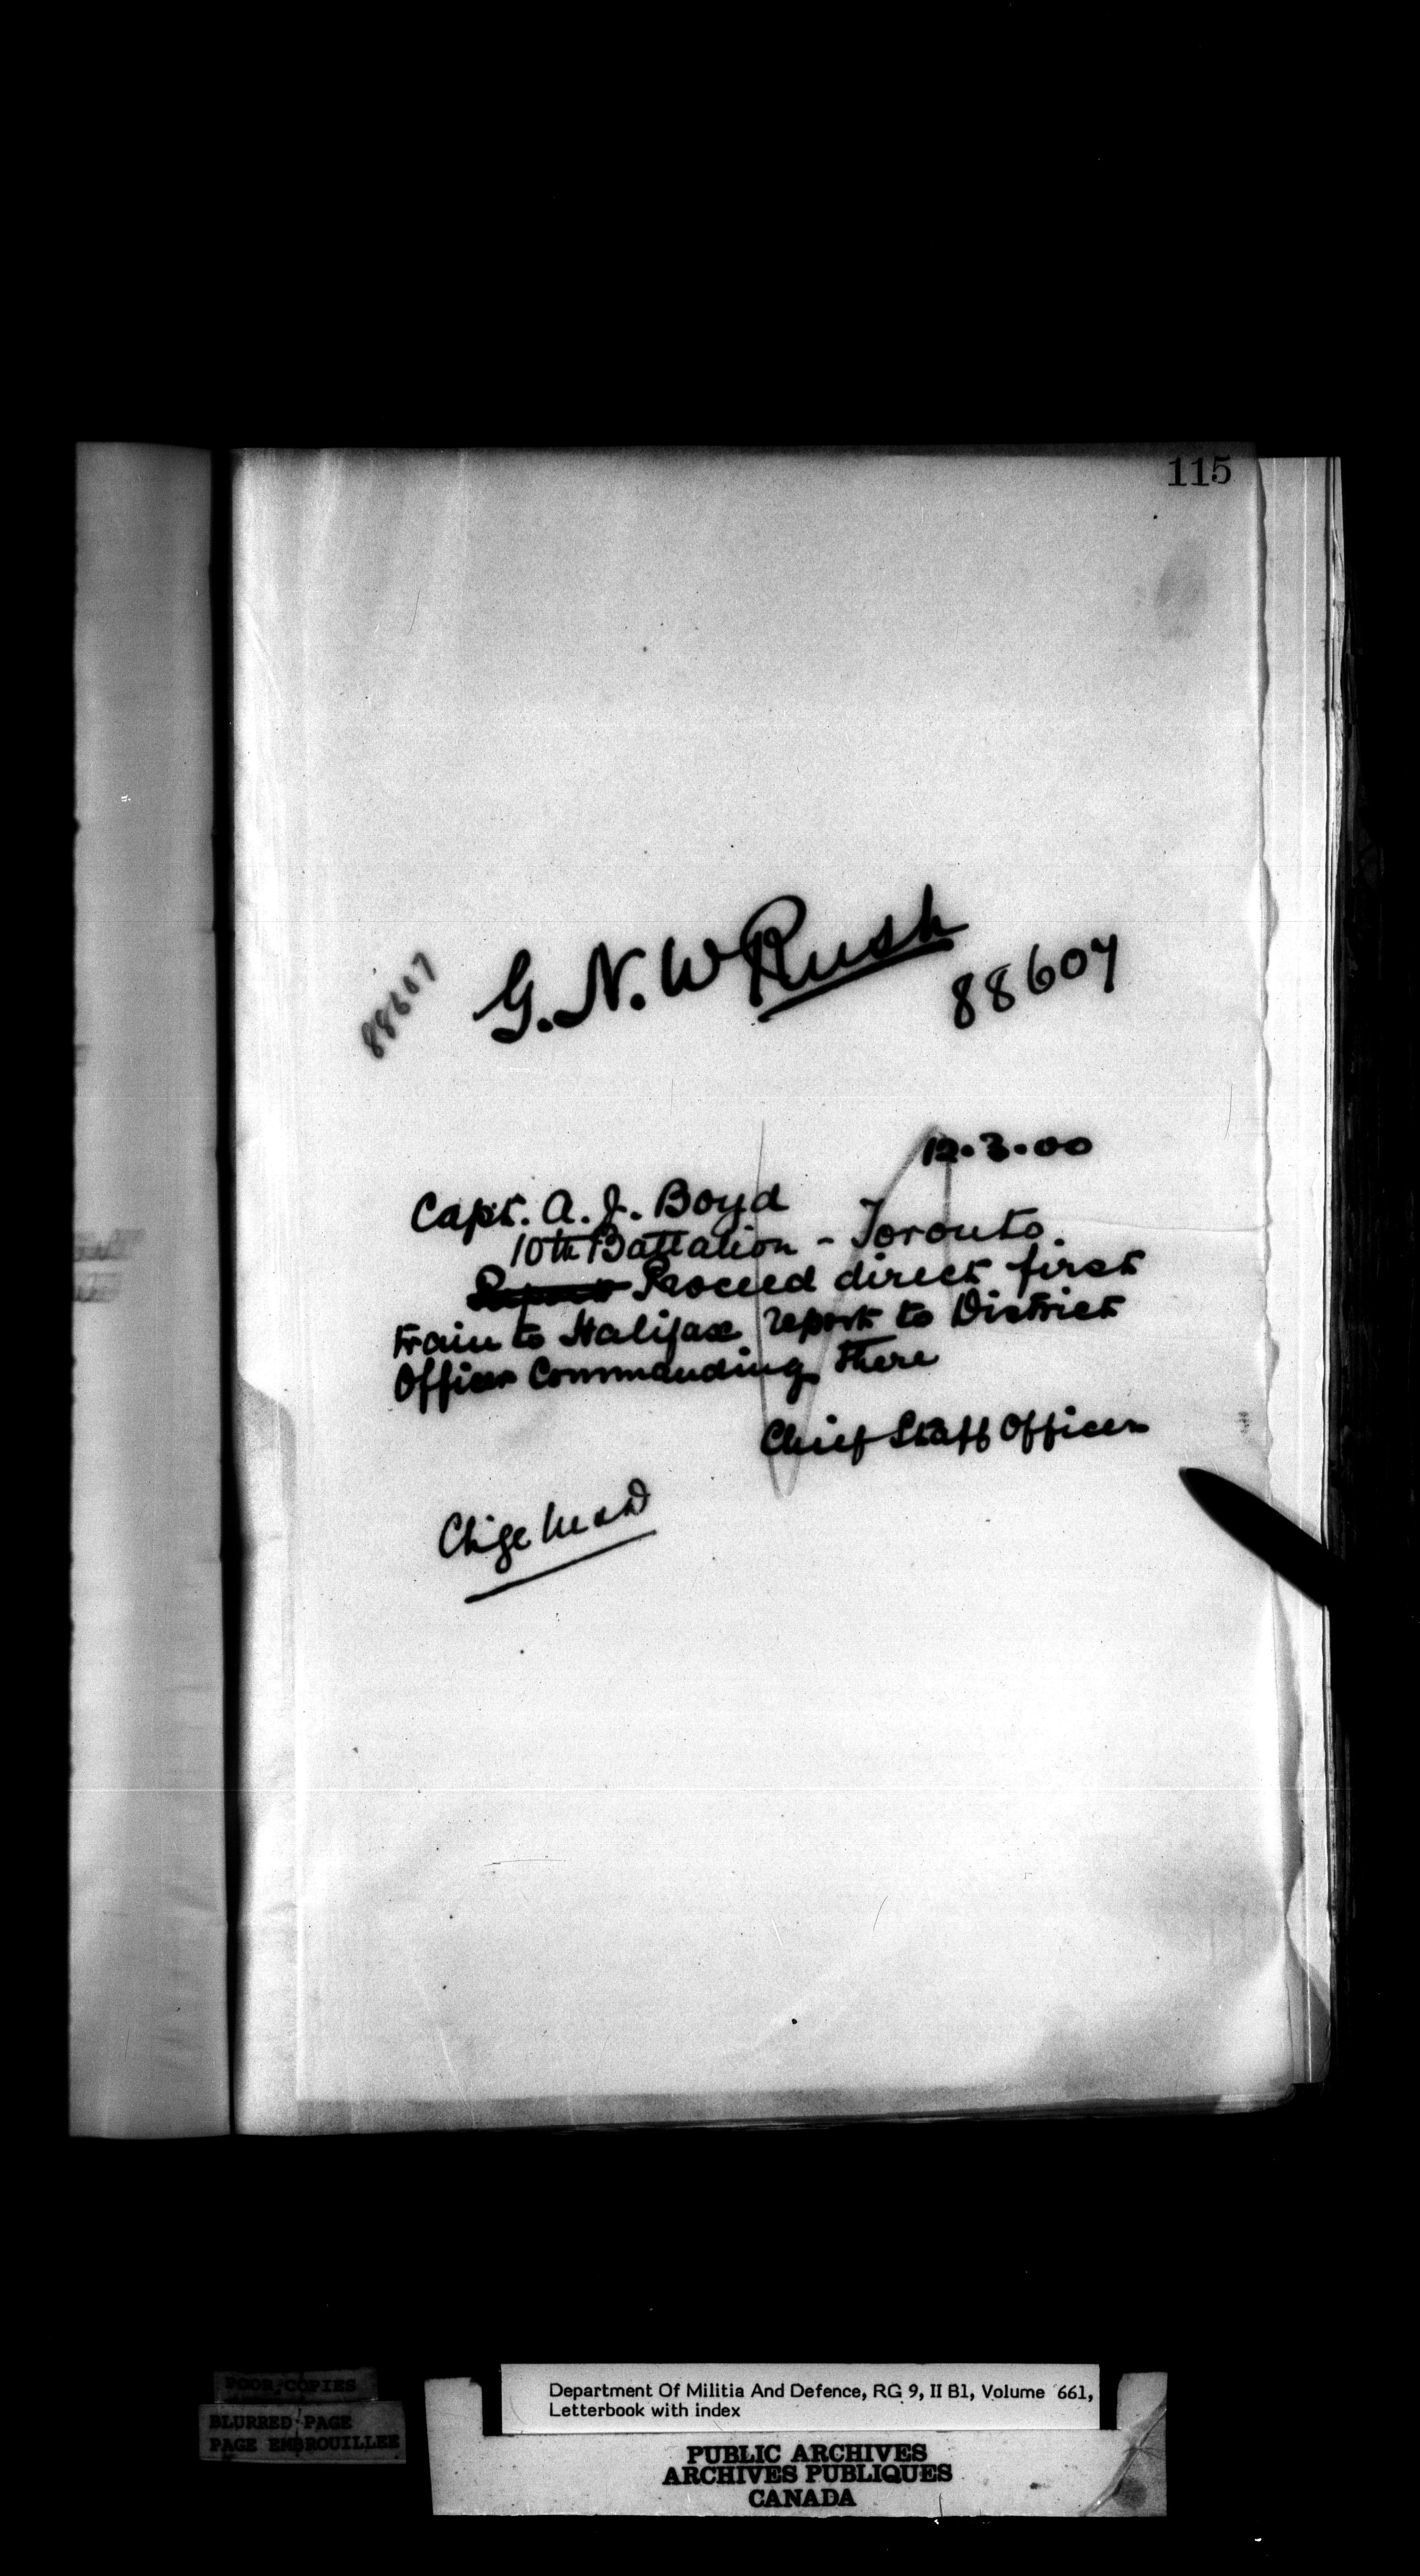 115
G. N. W Rush
88607
88607
12.3.00
Capt. A. J. Boyd
10th Battalion - Toronto.
Proceed direct first
train to Halifax report to District
Officer Commanding there
Chief Staff Officer
Chge M & D
POOR COPIES
BLURRED PAGE
PAGE EMBROUILLEE
Department Of Militia And Defence, RG 9, II B1, Volume 661,
Letterbook with index
PUBLIC ARCHIVES
ARCHIVES PUBLIQUES
CANADA